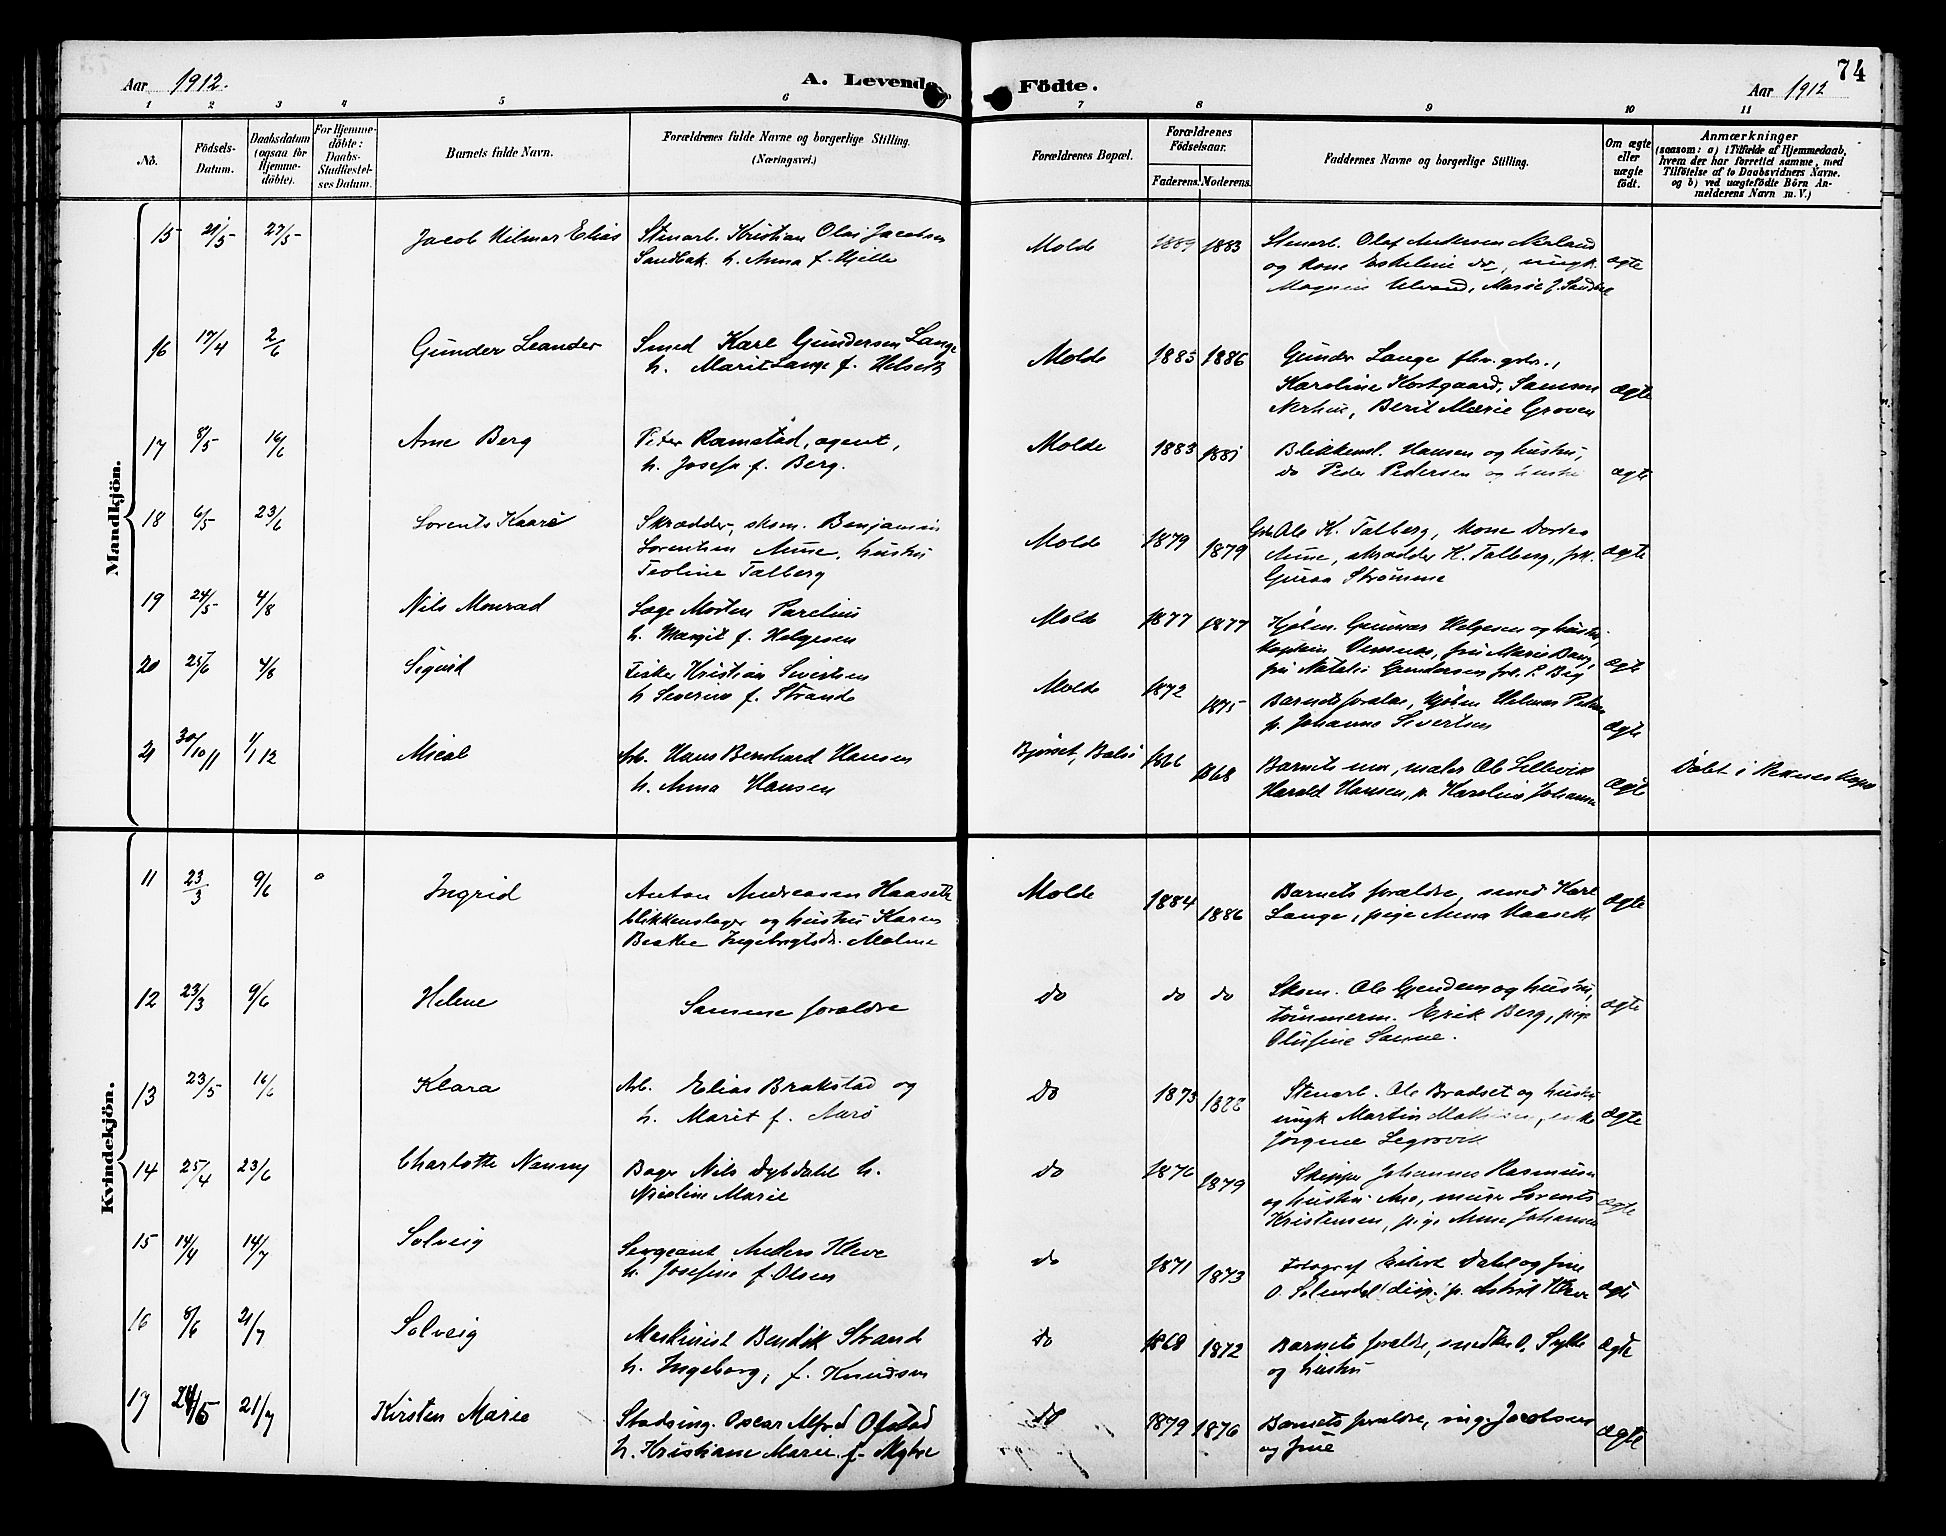 74
Aar 1912.
A. Levende
Födte.
Aar 1912
1 2 3 4 5 6 7 8 9 10 11
No.
Födsels-
Datum.
Daabsdatum
(ogsaa for
Hjemme-
döbte).
For Hjemme-
döbte:
Daabs-
Stadfæstel-
ses Datum.
Barnets fulde Navn.
Forældrenes fulde Navne og borgerlige Stilling.
(Næringsvei.)
Forældrenes Bopæl.
Forældrenes
Födselsaar.
Faderens. Moderens.
Faddernes Navne og borgerlige Stilling.
Om ægte
eller
uægte
födt.
Anmærkninger
(saasom: a) i Tilfælde af Hjemmedaab,
hvem der har forrettet samme, med
Tilföielse af to Daabsvidners Navne,
og b) ved uægtefödte Börn An-
melderens Navn m. V.)
Mandkjön.
15 27/5 Jacob Hilmar Elias Stenarb. Kristian Olai Jacobsen
Sandbak h. Anna f. Hjelle
Molde 1889 1883 Stenarb. Olaf Andersen
og Kone do, ungk.
ægte
16 17/4 2/6 Gunder Leander Smed Karl Gundersen Lange
h. Marit Lange f. Helseth
Molde 1885 1886 Gunder Lange fhv. gbr.,
Karoline Kortgaard, Samson
Nerhus, Berit Marie Groven
ægte
17 8/5 16/6 Arne Berg Peter Ramstad, agent,
h. Josefa f. Berg.
Molde 1883 1881 Blikkensl. Hansen og hustru,
do Peder Pedersen og hustru
ægte
18 6/5 23/6 Lorents Kaare Skrædder, Benjamin
Lorentsen Aune, hustru
Teoline Talberg
Molde 1879 1879 Ole K. Talberg, Kone Dortea
Aune, skrædder K. Talberg, frk.
Guroa Strømme
ægte
19 24/5 4/8 Nils Monrad Læge Morten Parelius
h. Margit f. Helgesen
Molde 1877 1877 Kjøbm. Gunnar Helgesen og hustru,
fru Marie Bang,
fru Natalie Gundersen
ægte
20 25/6 4/8 Sigurd Fisker Kristian Sivertsen
h. Severine f. Strande
Molde 1872 1875 Barnets forældre, kjøbm.
p. Johanna Sivertsen
ægte
21 30/10 11 1/1 12 Micael Arb. Hans Bernhard Hansen
h. Anna Hansen
Bjørset, Bolsø 1866 1868 Barnets mor, maler Ole
Harald Hansen, p. Karoline Johansen
ægte
Døbt i Reknes
Kvindekjön.
11 23/3 9/6 Ingrid Anton Andreasen Haaseth
blikkenslager og hustru Karen
Beathe Ingebrigtsdr. Malme
Molde 1884 1886 Barnets forældre, smed Karl
Lange, pige Anna Haaseth
ægte
12 23/3 9/6 Helene Samme forældre
do do do Skom. Ole Gjendem og hustru,
tømmerm. Erik Berg, pige
Olufine Sanne.
ægte
13 23/5 16/6 Klara Arb. Elias Brakstad og
h. Marit f. Aarø
do 1873 Stenarb. Ole Bradset og hustru
ungk Martin
Jørgine Legrovik
ægte
14 25/4 23/6 Charlotte Nanny Bager Nils Dybdahl h.
Nicoline Marie
do 1876 1879 Skipper Johannes Rasmussen
og hustru Ane, murer Lorents
Kristensen, pige Anne Johansen
ægte
15 14/4 14/7 Solveig Sergeant Anders Kleve
h. Josefine f. Olsen
do 1871 1873 Fotograf Dahl og frue
O. Solemdal p. Astrid Kleve
ægte
16 8/6 21/7 Solveig Maskinist Bendik Strand
h. Ingeborg, f. Knudsen
do 1868 1872 Barnets forældre, snedker O. Sylte
og hustru
ægte
17 24/5 21/7 Kirsten Marie Stadsing. Oscar Alfred Ofstad
h. Kristiane Marie f. Myhre
do 1879 1876 Barnets forældre, ing. Jacobsen
og frue
ægte